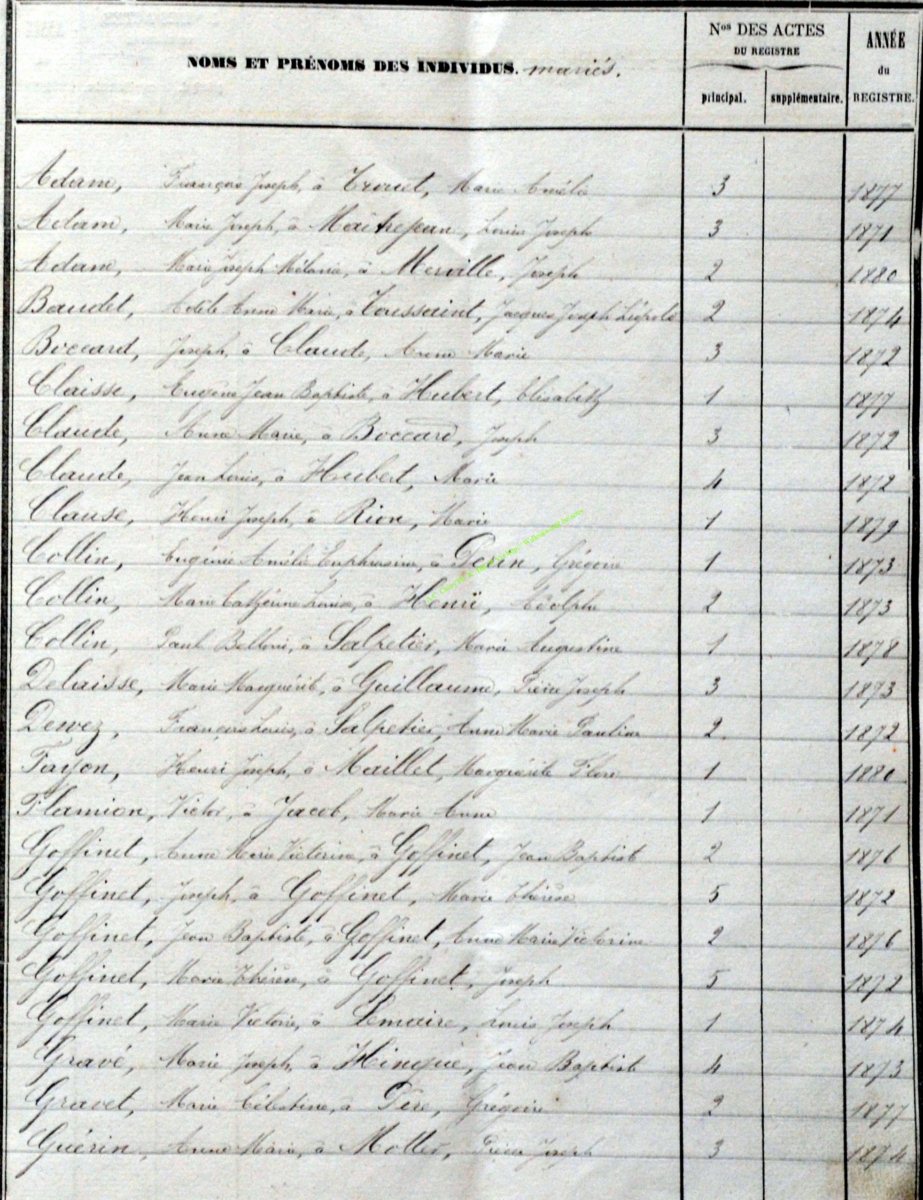 NOMS ET PRÉNOMS DES INDIVIDUS. mariés.
Nos DES ACTES
DU REGISTRE
principal. supplémentaire.
ANNÉE
du
REGISTRE.
Adam, François Joseph, à Trouet, Marie Amélie 3 1877
Adam, Marie Joseph, à Maîtrejean, Louis Joseph 3 1871
Adam, Marie Joseph Mélanie, à Merville, Joseph 2 1880
Baudet, Anne Marie, à Toussaint, Jacques Joseph Léopold 2 1874
Boccard, Joseph, à Claude, Anne Marie 3 1872
Claisse, Eugène Jean Baptiste, à Hubert, Elisabeth 1 1877
Claude, Anne Marie, à Boccard, Joseph 3 1872
Claude, Jean Louis, à Hubert, Marie 4 1872
Clause, Henri Joseph, à Rion, Marie 1 1879
Collin, Eugénie Amélie Euphrasine, à Perin, Grégoire 1 1873
Collin, Marie Cathérine Louise, à Henri, Adolphe 2 1873
Collin, Paul à Salpetier, Marie Augustine 1 1878
Delaisse, Marie Marguérite, à Guillaume, Pierre Joseph 3 1873
Dewez, François Louis, à Salpetier, Anne Marie Pauline 2 1872
Fayon, Henri Joseph, à Maillet, Marguérite Flore 1 1880
Flamion, Victor, à Jacob, Marie Anne 1 1871
Goffinet, Anne Marie Victorine, à Goffinet, Jean Baptiste 2 1876
Goffinet, Joseph, à Goffinet, Marie Thérèse 5 1872
Goffinet, Jean Baptiste, à Goffinet, Anne Marie Victorine 2 1876
Goffinet, Marie Thérèse, à Goffinet, Joseph 5 1872
Goffinet, Marie Victoire, à Lemaire, Louis Joseph 1 1874
Gravé, Marie Joseph, à Hinque, Jean Baptiste 4 1873
Gravet, Marie Célestine, à Père, Grégoire 2 1877
Guérin, Anne Marie, à Moller, Pierre Joseph 3 1874